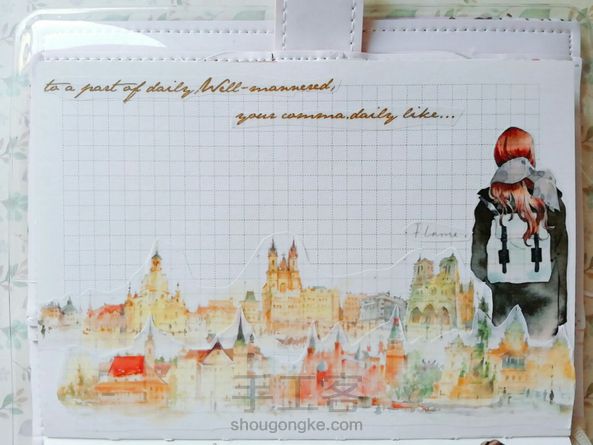 to a part of daily, Well-mannered,
your comma. daily like...
Flame.
手工客
shougongke.com